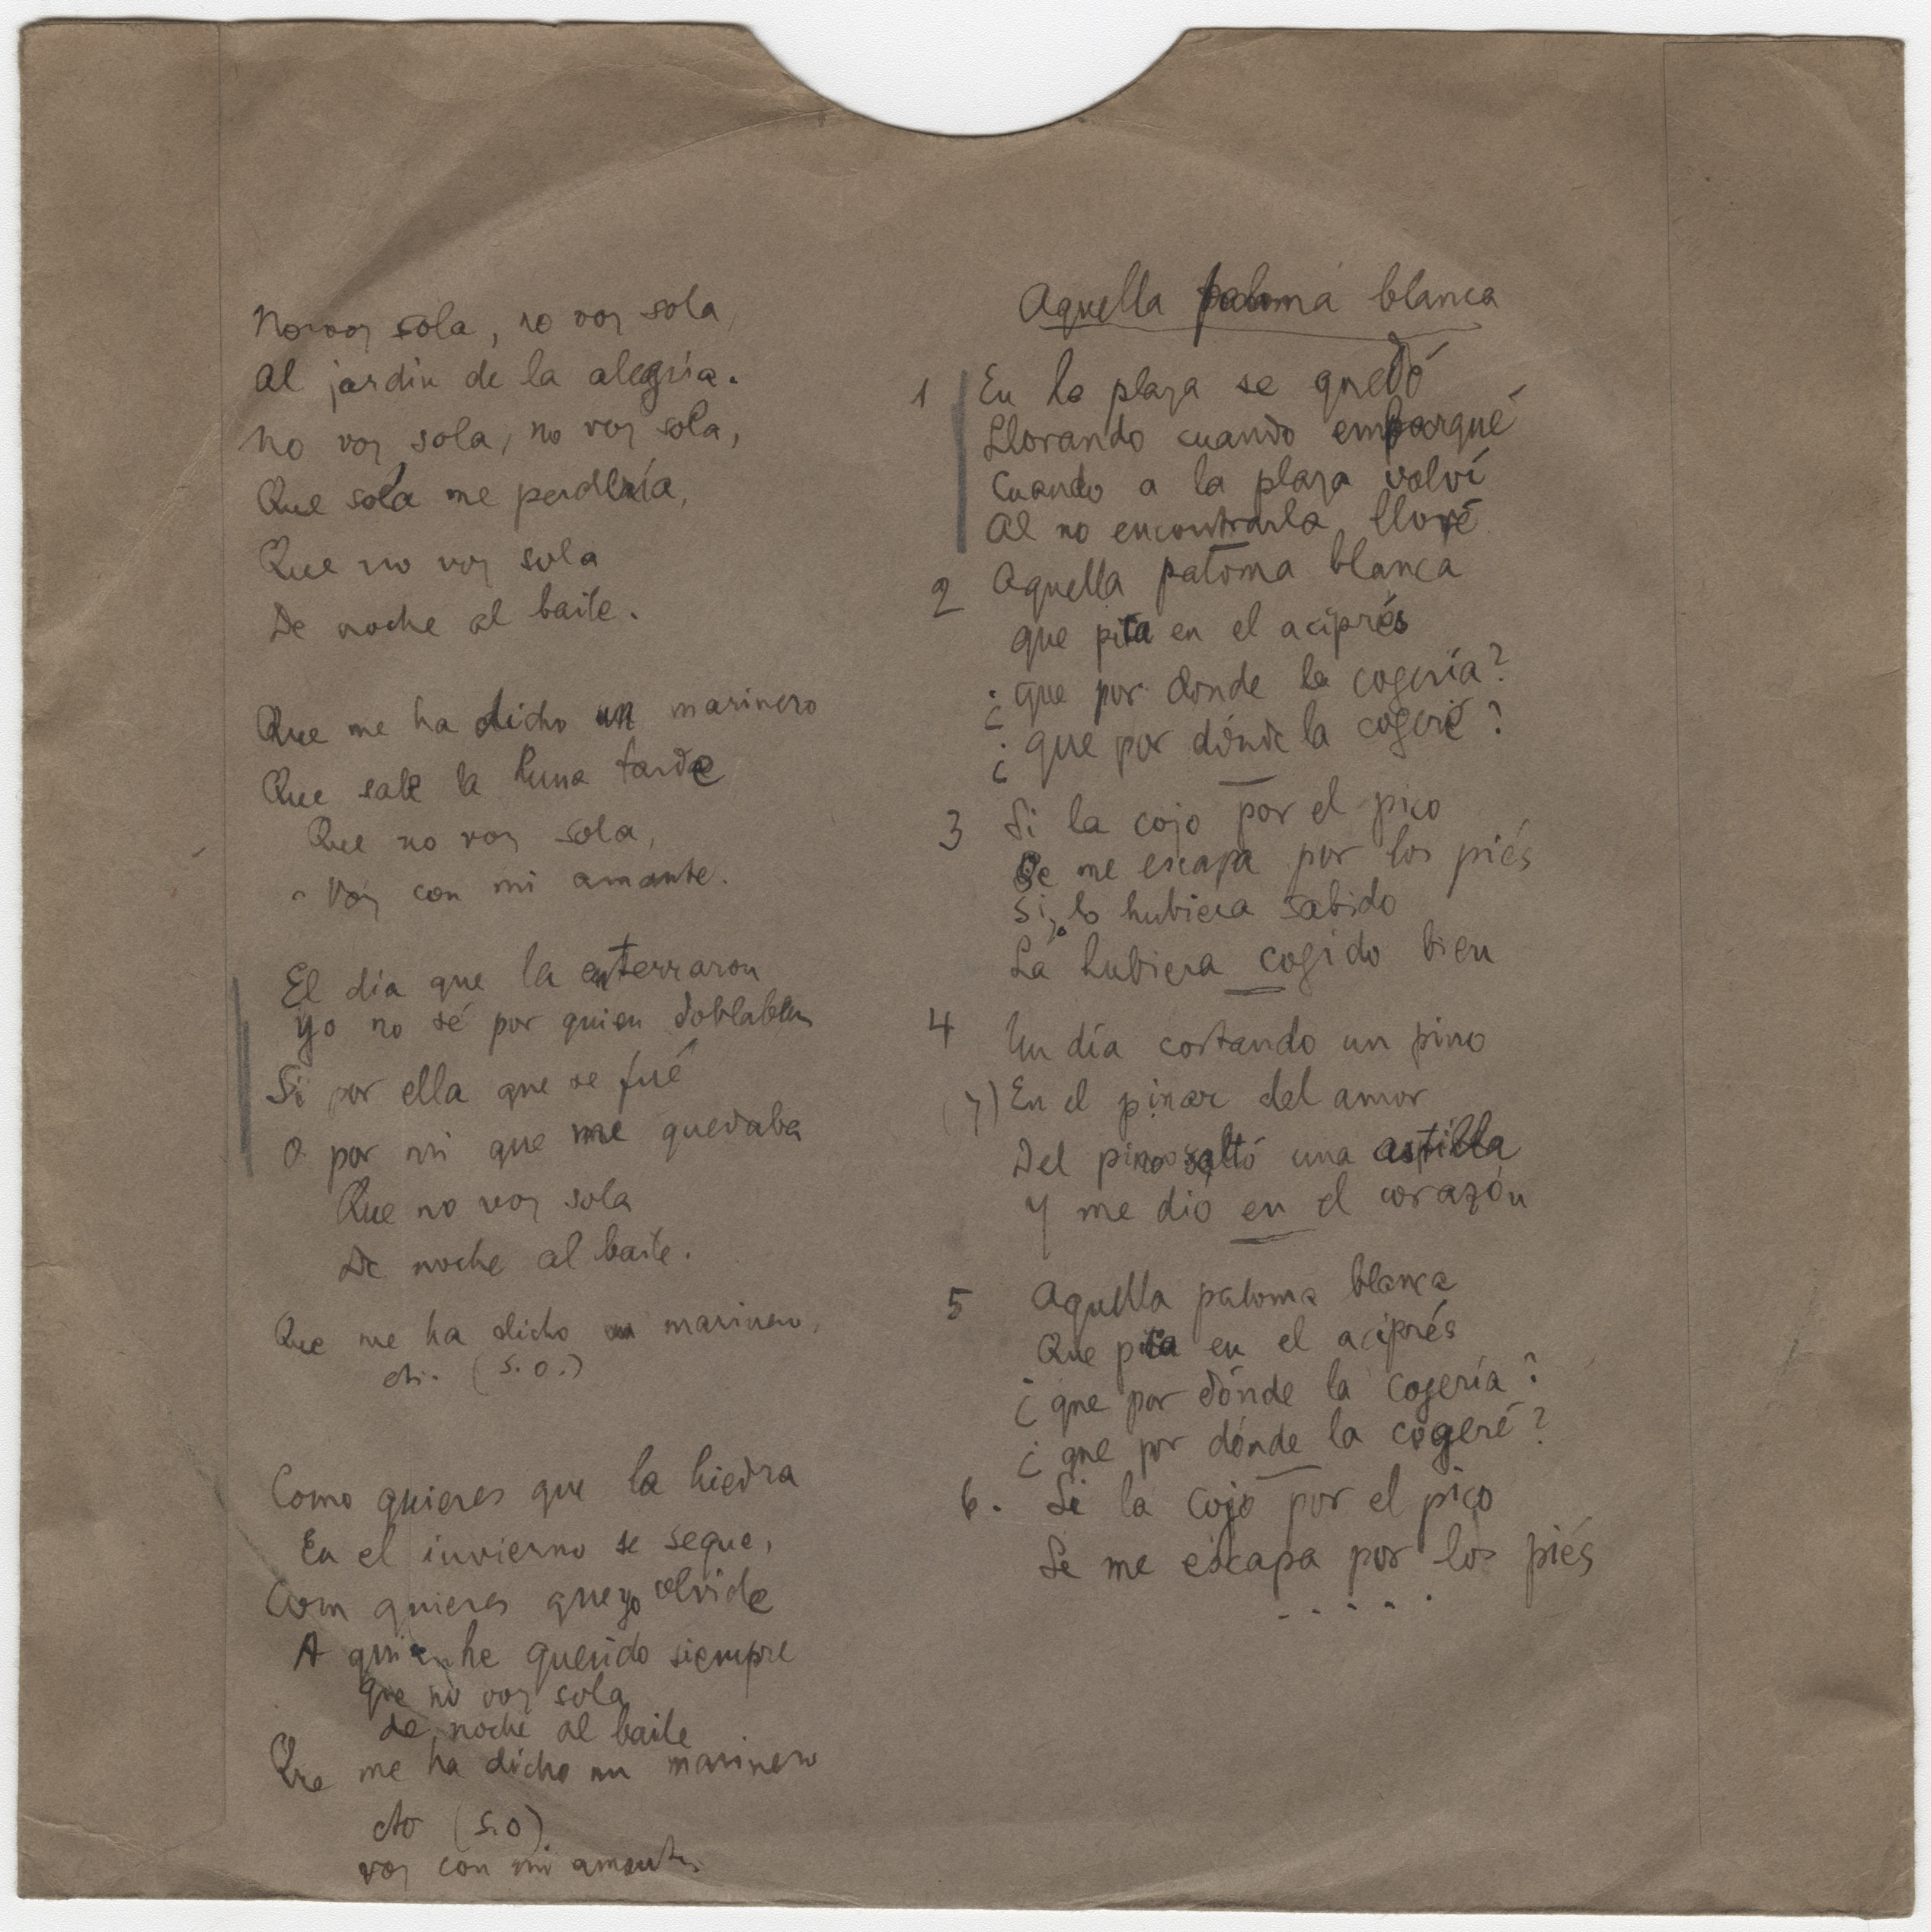 No voy sola, no voy sola,
Al jardin de la alegría.
No voy sola, no voy sola,
Que sola me perdería,
Que no voy sola
De noche al baile.
Que me ha dicho un marinero
Que sale la luna tarde
Que no voy sola,
Voy con mi amante.
El día que la enterraron
yo no sé por quien doblaban
Si por ella que se fué
O por mi que me quedaba
Que no voy sola
De noche al baile.
Que me ha dicho un marinero,
etc. (S.O.)
Como quieres que la hiedra
En el invierno se seque,
Com quieres que yo olvide
A quien he querido siempre
que no voy sola
de noche al baile
Que me ha dicho un marinero
etc (S.O).
voy con mi amante.
Aquella paloma blanca
1 En la plaza se quedó
Llorando cuando embarqué
Cuando a la plaza volví
Al no encontrarla lloré
2 Aquella paloma blanca
que pita en el aciprés
¿que por donde la cogería?
¿que por dónde la cogeré?
3 Si la cojo por el pico
Se me escapa por los piés
Si yo lo hubiera sabido
La hubiera cogido bien
4 Un día cortando un pino
(y) En el pinar del amor
Del pino saltó una astilla
Y me dió en el corazón
5 Aquella paloma blanca
Que pita en el aciprés
¿que por dónde la cogería?
¿que por dónde la cogeré?
6. Si la cojo por el pico
Se me escapa por los piés
. . . . .